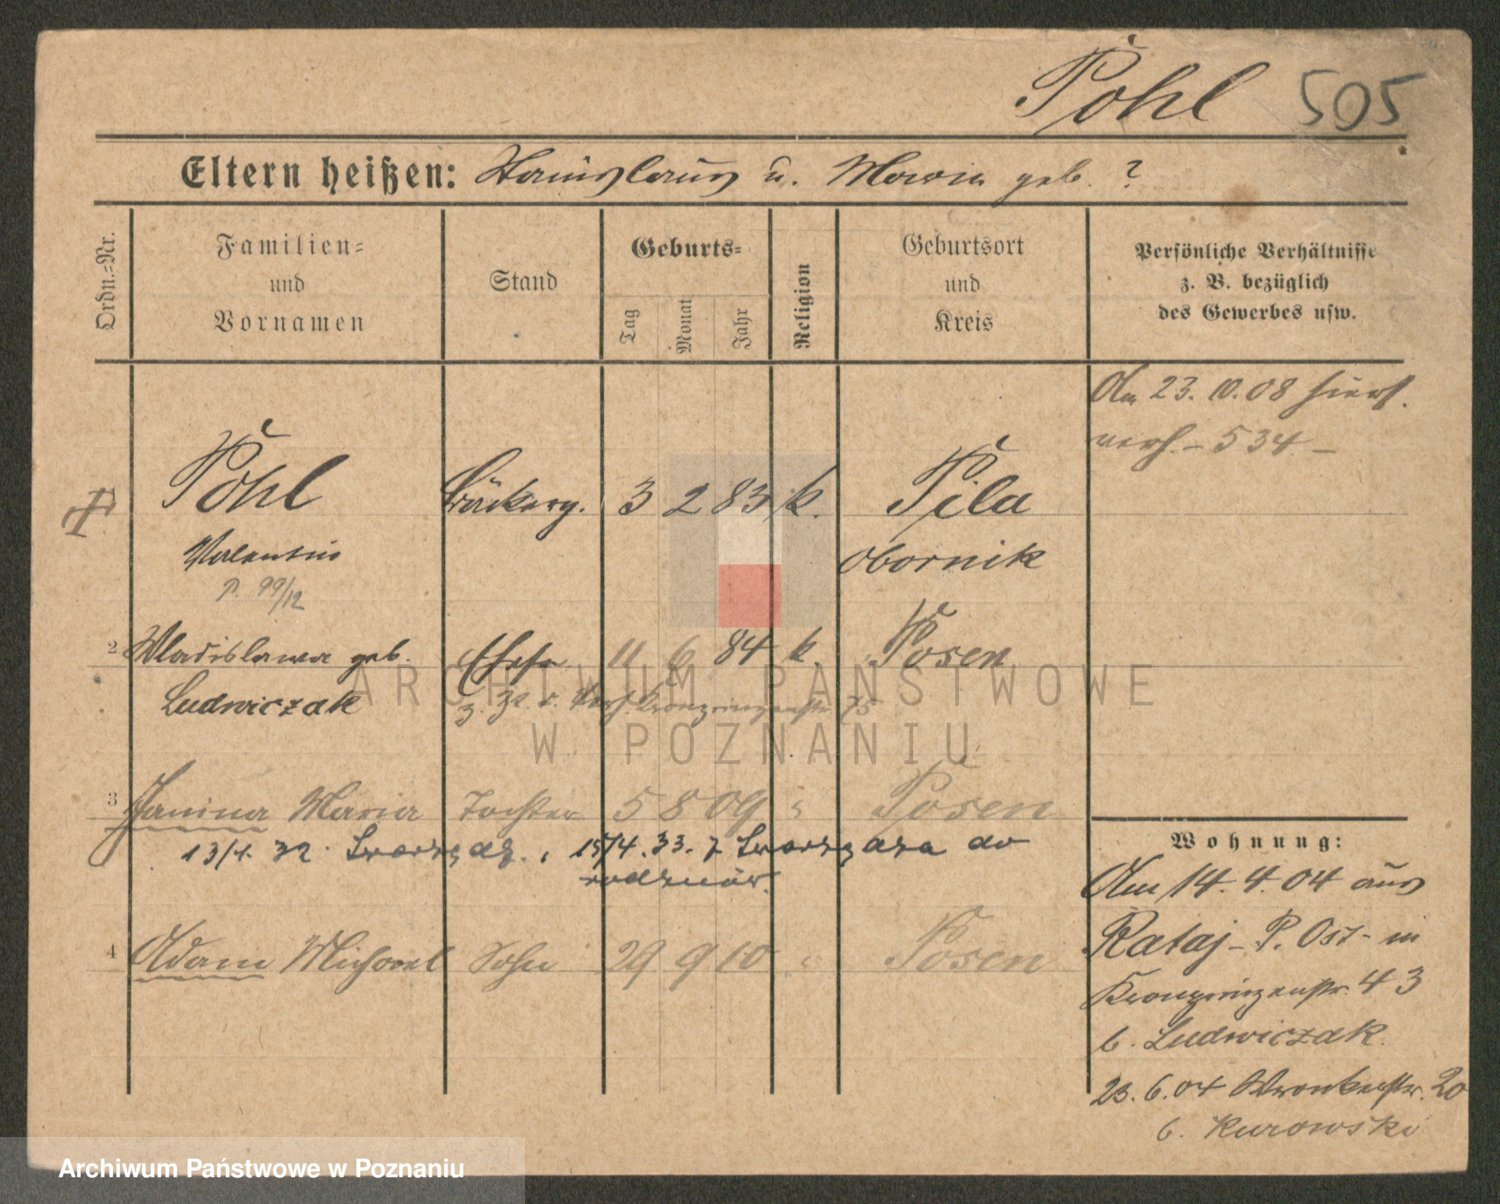 Pohl 505
Eltern heißen: Stanislaus u. Maria geb. ?
Ordn.-Nr.
Familien- und Vornamen
Stand
Geburts-
Tag
Monat
Jahr
Religion
Geburtsort und Kreis
Persönliche Verhältnisse
z. B. bezüglich
des Gewerbes usw.
Am 23. 10. 08 hiers.
verh. - 534 -
Pohl Bäckerg. 3 2 83 k. Pila
Valentin Obornik
P. 99/12
2 Wladislawa geb. Ehefr 11 6 84 k. Posen
Ludwiczak z. Zt. v. Kronprinzenstr. 75
3 Janina Maria Tochter 5 8 09 " Posen
13/1. 32. 15/4. 33. z do
4 Adam Michael Sohn 29 9 10 " Posen
Wohnung:
Am 14. 4. 04 aus
Rataj - P. Ost - in
Kronprinzenstr. 43
b. Ludwiczak.
23. 6. 04 Wronkerstr. 20
b. Kurowski
ARCHIWUM PAŃSTWOWE
W POZNANIU
Archiwum Państwowe w Poznaniu